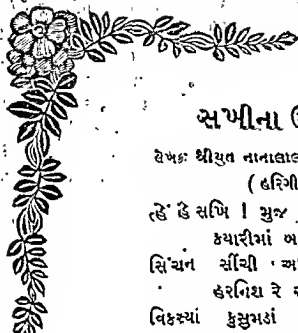 સખીના
લેખકઃ શ્રીયુત નાનાલાલ
(હરિગી
હે સખિ ! મુજ
કયારીમાં
સિંચન સીંચી
હરનિશ રે
વિકસ્યાં કુસુમડાં